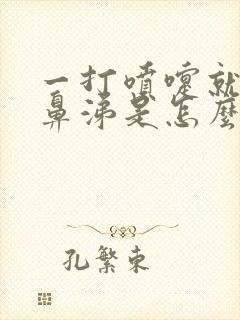 一打噴嚏就
鼻涕是怎麼
孔繁東